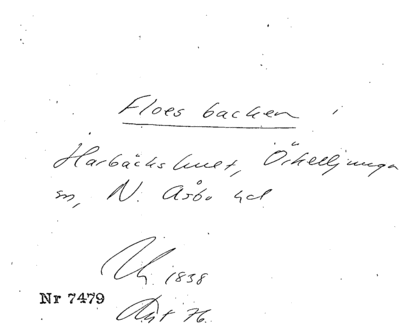 Floes backen i
Harbäckshult, Örkelljunga
sn, N. Åsbo hd
1838
Nr 7479
76.